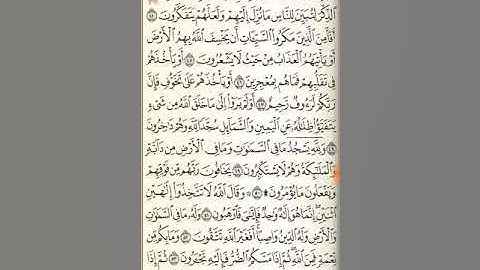 الذِّكْرَ لِتُبَيِّنَ لِلنَّاسِ مَا نُزِّلَ إِلَيْهِمْ وَلَعَلَّهُمْ يَتَفَكَّرُونَ ٤٤
أَفَأَمِنَ الَّذِينَ مَكَرُوا السَّيِّئَاتِ أَن يَخْسِفَ اللَّهُ بِهِمُ الْأَرْضَ
أَوْ يَأْتِيَهُمُ الْعَذَابُ مِنْ حَيْثُ لَا يَشْعُرُونَ ٤٥ أَوْ يَأْخُذَهُمْ
فِي تَقَلُّبِهِمْ فَمَا هُم بِمُعْجِزِينَ ٤٦ أَوْ يَأْخُذَهُمْ عَلَىٰ تَخَوُّفٍ فَإِنَّ
رَبَّكُمْ لَرَءُوفٌ رَّحِيمٌ ٤٧ أَوَلَمْ يَرَوْا إِلَىٰ مَا خَلَقَ اللَّهُ مِن شَيْءٍ
يَتَفَيَّؤُا ظِلَالُهُ عَنِ الْيَمِينِ وَالشَّمَائِلِ سُجَّدًا لِّلَّهِ وَهُمْ دَاخِرُونَ
٤٨ وَلِلَّهِ يَسْجُدُ مَا فِي السَّمَاوَاتِ وَمَا فِي الْأَرْضِ مِن دَابَّةٍ
وَالْمَلَائِكَةُ وَهُمْ لَا يَسْتَكْبِرُونَ ٤٩ يَخَافُونَ رَبَّهُم مِّن فَوْقِهِمْ
وَيَفْعَلُونَ مَا يُؤْمَرُونَ ۩ ٥٠ ۞ وَقَالَ اللَّهُ لَا تَتَّخِذُوا إِلَٰهَيْنِ
اثْنَيْنِ إِنَّمَا هُوَ إِلَٰهٌ وَاحِدٌ فَإِيَّايَ فَارْهَبُونِ ٥١ وَلَهُ مَا فِي السَّمَاوَاتِ
وَالْأَرْضِ وَلَهُ الدِّينُ وَاصِبًا أَفَغَيْرَ اللَّهِ تَتَّقُونَ ٥٢ وَمَا بِكُم مِّن
نِّعْمَةٍ فَمِنَ اللَّهِ ثُمَّ إِذَا مَسَّكُمُ الضُّرُّ فَإِلَيْهِ تَجْأَرُونَ ٥٣ ثُمَّ إِذَا